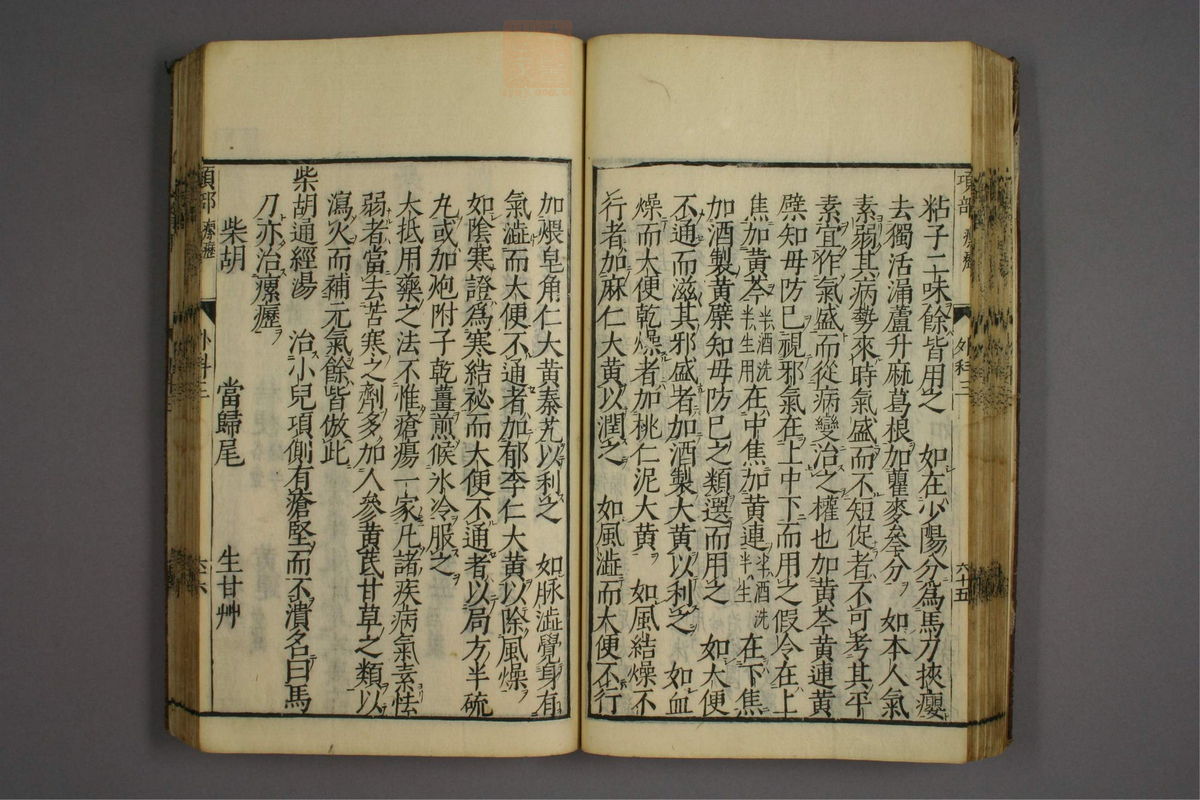 粘子二味餘皆用之　如在少陽分爲馬刀挾癭
去獨活漏蘆升麻葛根加瞿麥叄分　如本人氣
素弱其病勢來時氣盛而不短促者不可考其平
素宜作氣盛而從病變治之權也加黃芩黃連黃
檗知毋防已視邪氣在上中下而用之假令在上
焦加黃芩半酒洗半生用在中焦加黃連半酒洗半生在下焦
加酒製黃檗知毋防已之類選而用之　如大便
不通而滋其邪盛者加酒製大黃以利之　如血
燥而大便乾燥者加桃仁泥大黃　如風結燥不
行者加麻仁大黃以潤之　如風澁而大便不行
項部　瘰癧　外科三　六十五
加煨皂角仁大黃秦艽以利之　如脉澁覺身有
氣澁而大便不通者加郁李仁大黃以除風燥
如陰寒證爲寒結祕而大便不通者以局方半硫
丸或加炮附子乾薑煎候氷冷服之
大抵用藥之法不惟瘡瘍一家凡諸疾病氣素怯
弱者當去苦寒之劑多加人參黃芪甘草之類以
瀉火而補元氣餘皆倣此
柴胡通經湯　治小兒項側有瘡堅而不潰名曰馬
刀亦治瘰癧
柴胡　當歸尾　生甘艸
項部　瘰癧　外科三　六十六